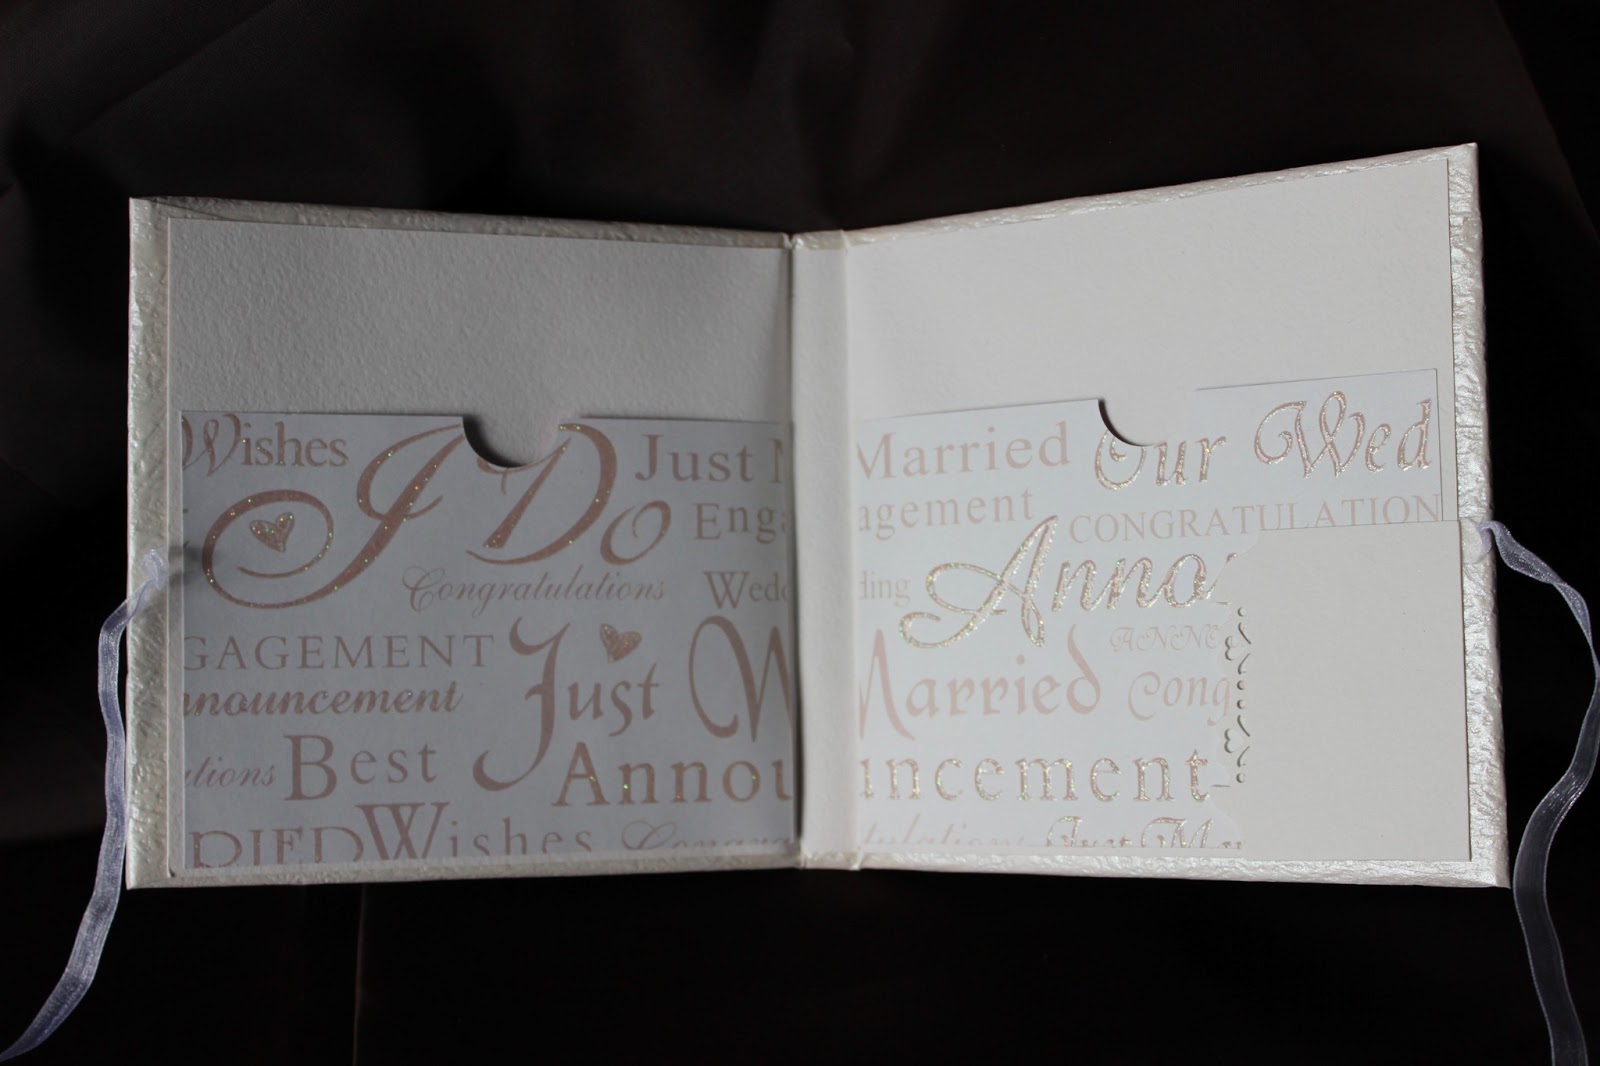 Wishes I Do Just
Enga
Congratulations Wedd
GAGEMENT
nnouncement Just
Best
Announ
RIED Wishes
Married Our Wed
agement
CONGRATULATION
ding Anno
ANNE
Married Cong
uncement
ulations
Just Ma